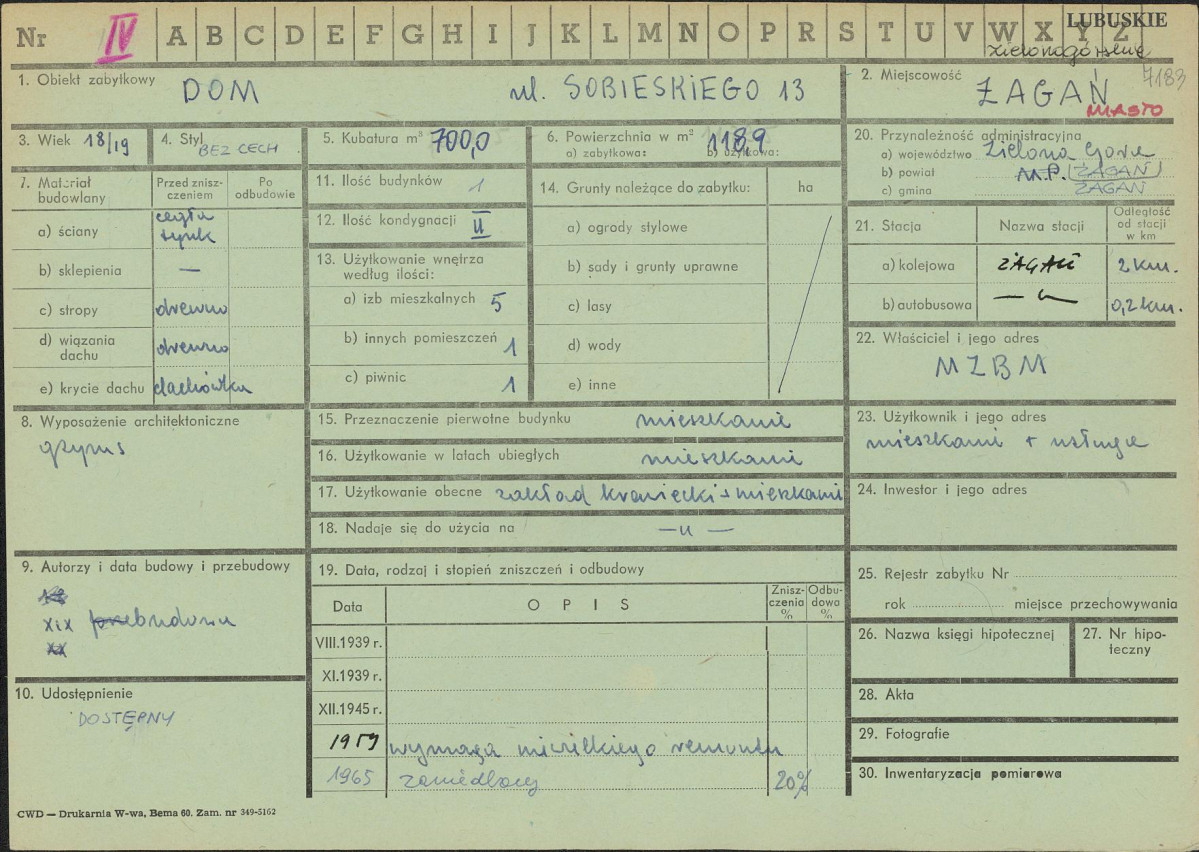 Nr IV A B C D E F G H I J K L M N O P R S T U V W X Y Z LUBUSKIE
zielonogórskie
7183
1. Obiekt zabytkowy DOM ul. SOBIESKIEGO 13
2. Miejscowość ŻAGAŃ
MIASTO
3. Wiek 18/19
4. Styl BEZ CECH
5. Kubatura m³ 700,0
6. Powierzchnia w m² 118,9
a) zabytkowa: b) użytkowa:
7. Materiał budowlany
Przed zniszczeniem
Po odbudowie
a) ściany cegła tynk
b) sklepienia —
c) stropy drewno
d) wiązania dachu drewno
e) krycie dachu dachówka
8. Wyposażenie architektoniczne
gzyms
9. Autorzy i data budowy i przebudowy
XIX
XX
10. Udostępnienie
DOSTĘPNY
11. Ilość budynków 1
12. Ilość kondygnacji II
13. Użytkowanie wnętrza według ilości:
a) izb mieszkalnych 5
b) innych pomieszczeń 1
c) piwnic 1
14. Grunty należące do zabytku: ha
a) ogrody stylowe
b) sady i grunty uprawne
c) lasy
d) wody
e) inne
15. Przeznaczenie pierwotne budynku mieszkanie
16. Użytkowanie w latach ubiegłych mieszkanie
17. Użytkowanie obecne zakład krawiecki + mieszkanie
18. Nadaje się do użycia na —„—
19. Data, rodzaj i stopień zniszczeń i odbudowy
Data OPIS Zniszczenia % Odbudowa %
VIII.1939 r.
XI.1939 r.
XII.1945 r.
1959 wymaga niewielkiego remontu
1965 zaniedbany 20%
20. Przynależność administracyjna
a) województwo Zielona Góra
b) powiat M.P. (ŻAGAŃ)
c) gmina ŻAGAŃ
21. Stacja Nazwa stacji Odległość od stacji w km
a) kolejowa ŻAGAŃ 2 km.
b) autobusowa —„— 0,2 km.
22. Właściciel i jego adres
MZBM
23. Użytkownik i jego adres
mieszkanie + usługa
24. Inwestor i jego adres
25. Rejestr zabytku Nr
rok miejsce przechowywania
26. Nazwa księgi hipotecznej
27. Nr hipoteczny
28. Akta
29. Fotografie
30. Inwentaryzacja pomiarowa
CWD — Drukarnia W-wa, Bema 60. Zam. nr 349-5162